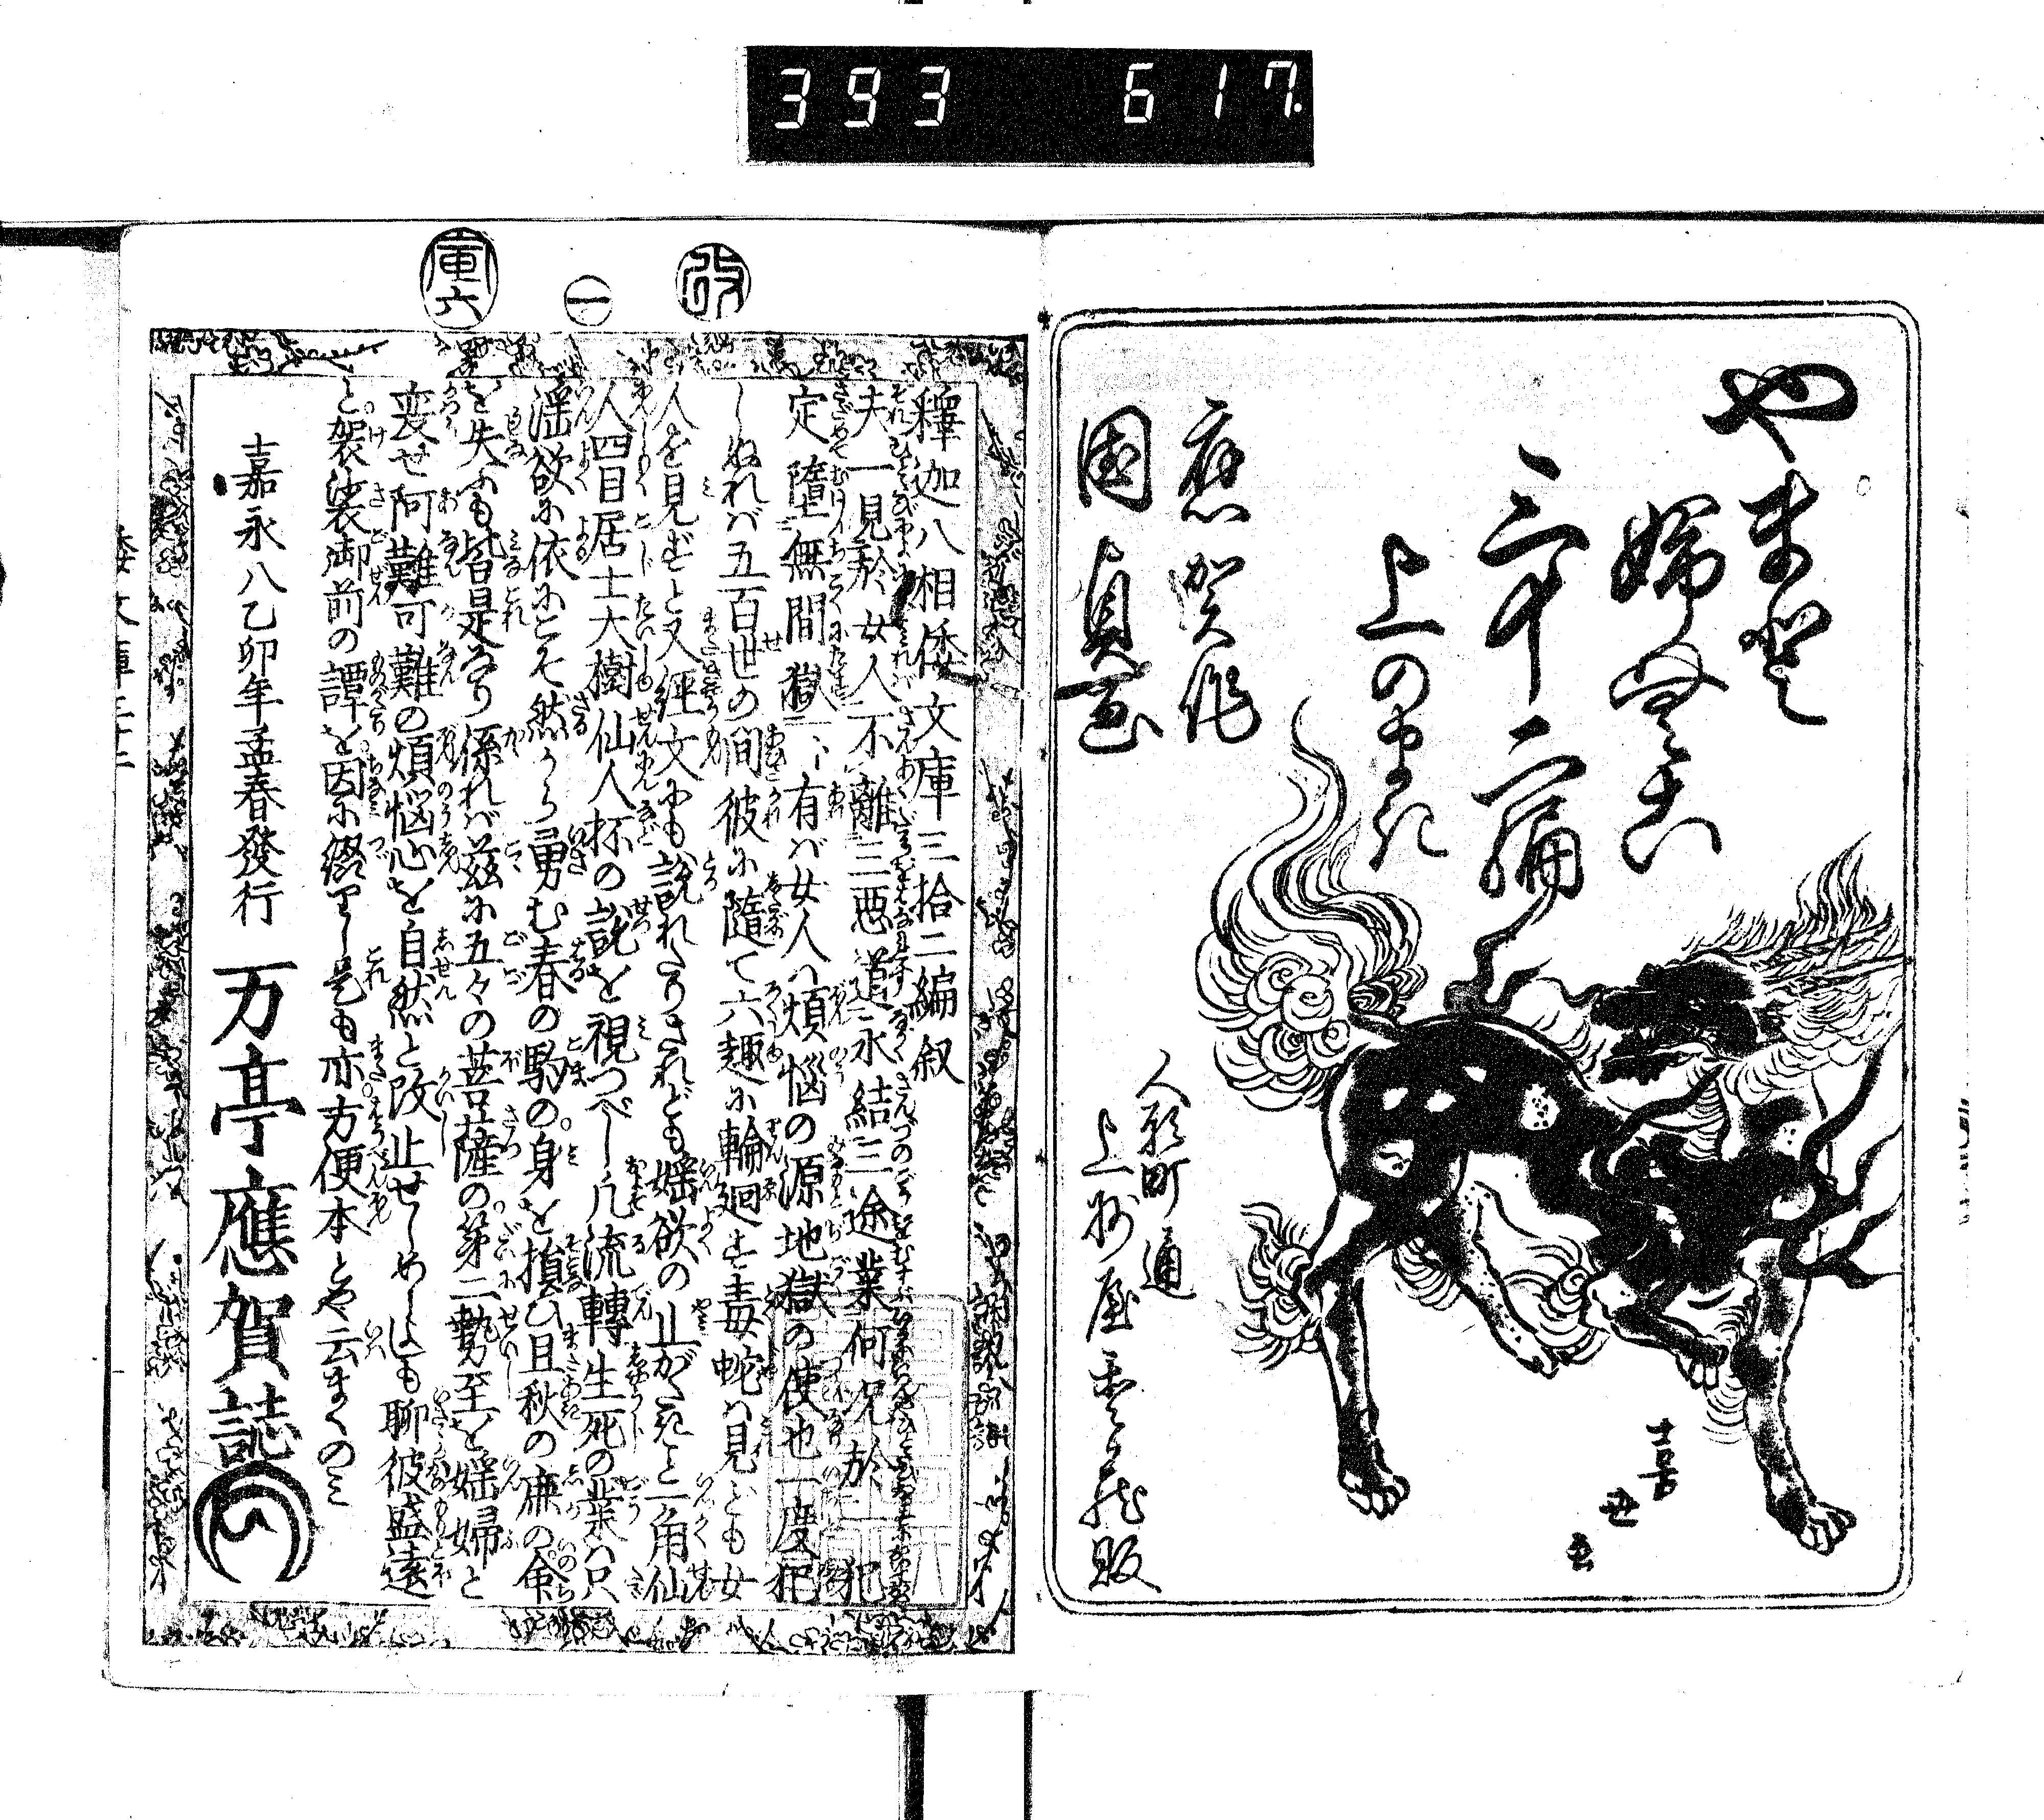 393 617
や末登
婦みこ
三十二編
上のまき
應賀作
国貞画
人形町通
上州屋重蔵販
改
一
寅六
釋迦八相倭文庫三拾二編叙
夫一見於女人不離三悪道永結三途業何况於一犯
定墮無間獄云々有バ女人ハ煩悩の源地獄の使也一度犯
しぬれバ五百世の間彼に隨て六趣に輪廻す毒蛇ハ見とも女
人を見ざと又經文にも説れたりされども婬欲の止がたきと一角仙
人四目居士大樹仙人抔の説を視つべし凡流轉生死の業ハ只
淫欲に依にこそ然から勇む春の駒の身を損ひ且秋の鹿の命
を失ふも皆是なり係れバ茲に五々の菩薩の第二勢至を婬婦と
変せ阿難可難の煩悩心を自然と改止せしめしも聊彼盛遠
と袈裟御前の譚を因に綴りし是も亦方便本とや云まくのミ
嘉永八乙卯年孟春發行
万亭應賀誌